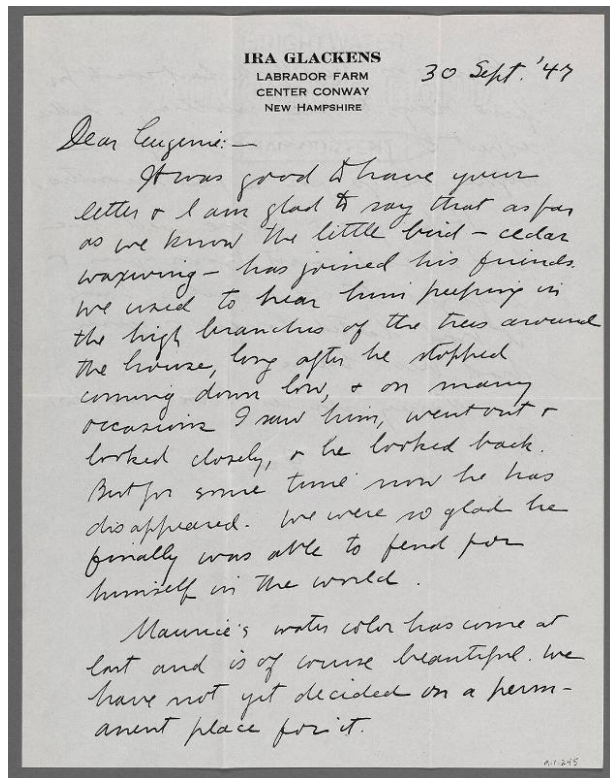 IRA GLACKENS
LABRADOR FARM
CENTER CONWAY
NEW HAMPSHIRE
30 Sept. '47
Dear Eugenie:—
It was good to have your
letter & I am glad to say that as far
as we know the little bird – cedar
waxwing – has joined his friends.
We used to hear him peeping in
the high branches of the trees around
the house, long after he stopped
coming down low, & on many
occasions I saw him, went out &
looked closely, & he looked back.
But for some time now he has
disappeared. We were so glad he
finally was able to fend for
himself in the world.
Maurice's water color has come at
last and is of course beautiful. We
have not yet decided on a perm-
anent place for it.